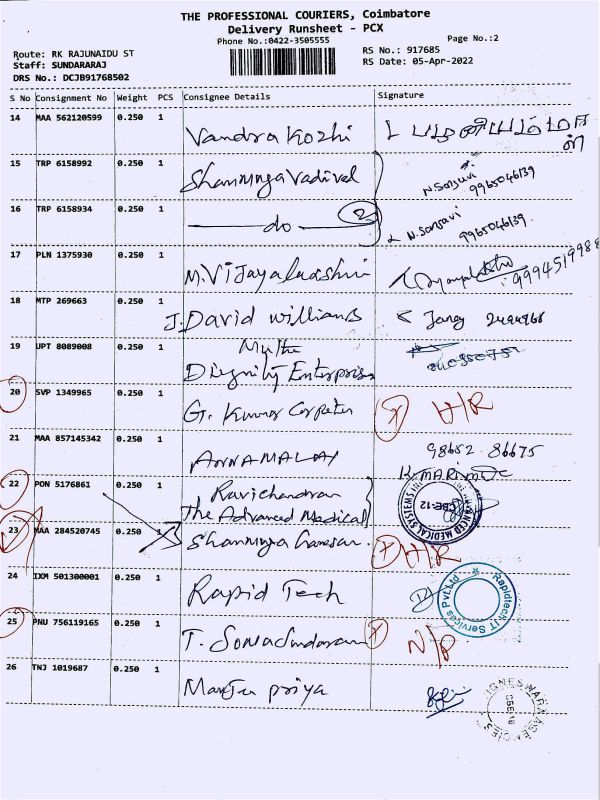 THE PROFESSIONAL COURIERS, Coimbatore
Delivery Runsheet - PCX
Phone No.:0422-3505555
Page No.:2
Route: RK RAJUNAIDU ST
RS No.: 917685
Staff: SUNDARARAJ
RS Date: 05-Apr-2022
DRS No.: DCJB91768502
S No Consignment No Weight PCS Consignee Details Signature
14 MAA 562120599 0.250 1
Vandra Kozhi
15 TRP 6158992 0.250 1
Shanmuga Vadivel
9965046139
16 TRP 6158934 0.250 1
do 2
9965046139
17 PLN 1375930 0.250 1
M. Vijayalakshmi
18 MTP 269663 0.250 1
J. David williams
19 UPT 8089008 0.250 1
Muthu
Dignity Enterprises
20 SVP 1349965 0.250 1
G. Kumar
21 MAA 857145342 0.250 1
ANNAMALAY
98652 86675
22 PON 5176861 0.250 1
Ravichandran
The Advanced Medical
CBE-12
23 MAA 284520745 0.250 1
Shanmuga Ganesan
24 IXM 501300001 0.250 1
Rapid Tech
Rapidtech IT Services Pvt Ltd
25 PNU 756119165 0.250 1
T.
26 TNJ 1019687 0.250 1
Manju priya